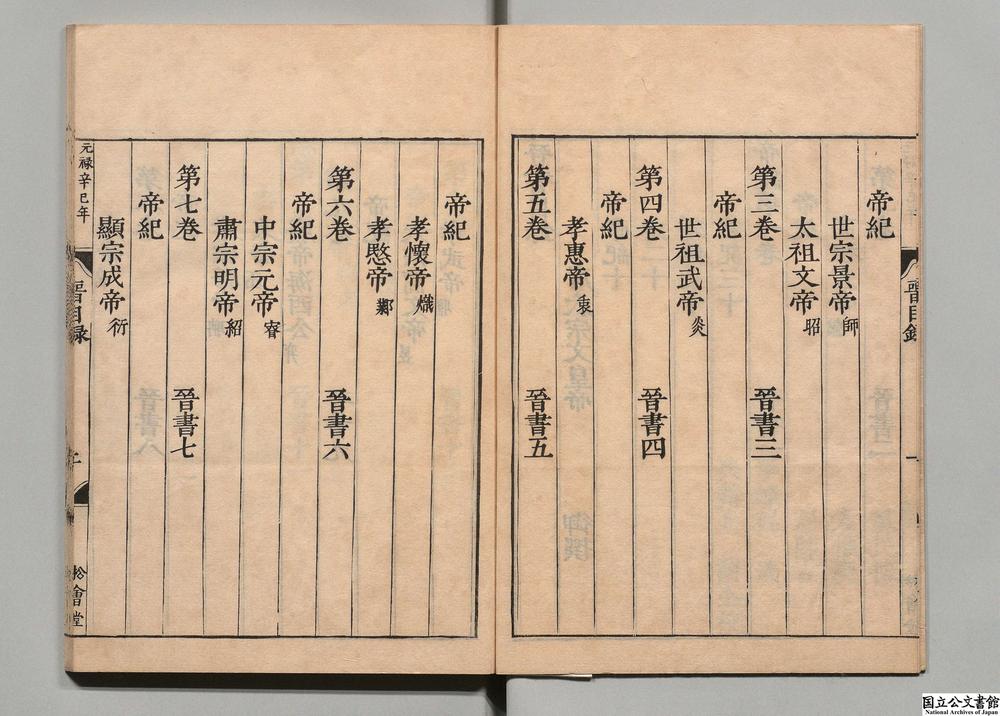 帝紀
世宗景帝師
太祖文帝昭
第三卷 晉書三
帝紀
世祖武帝炎
第四卷 晉書四
帝紀
孝惠帝衷
第五卷 晉書五
晉目錄
一
帝紀
孝懷帝熾
孝愍帝鄴
第六卷 晉書六
帝紀
中宗元帝睿
肅宗明帝紹
第七卷 晉書七
帝紀
顯宗成帝衍
元禄辛巳年
晉目録
松會堂
国立公文書館
National Archives of Japan